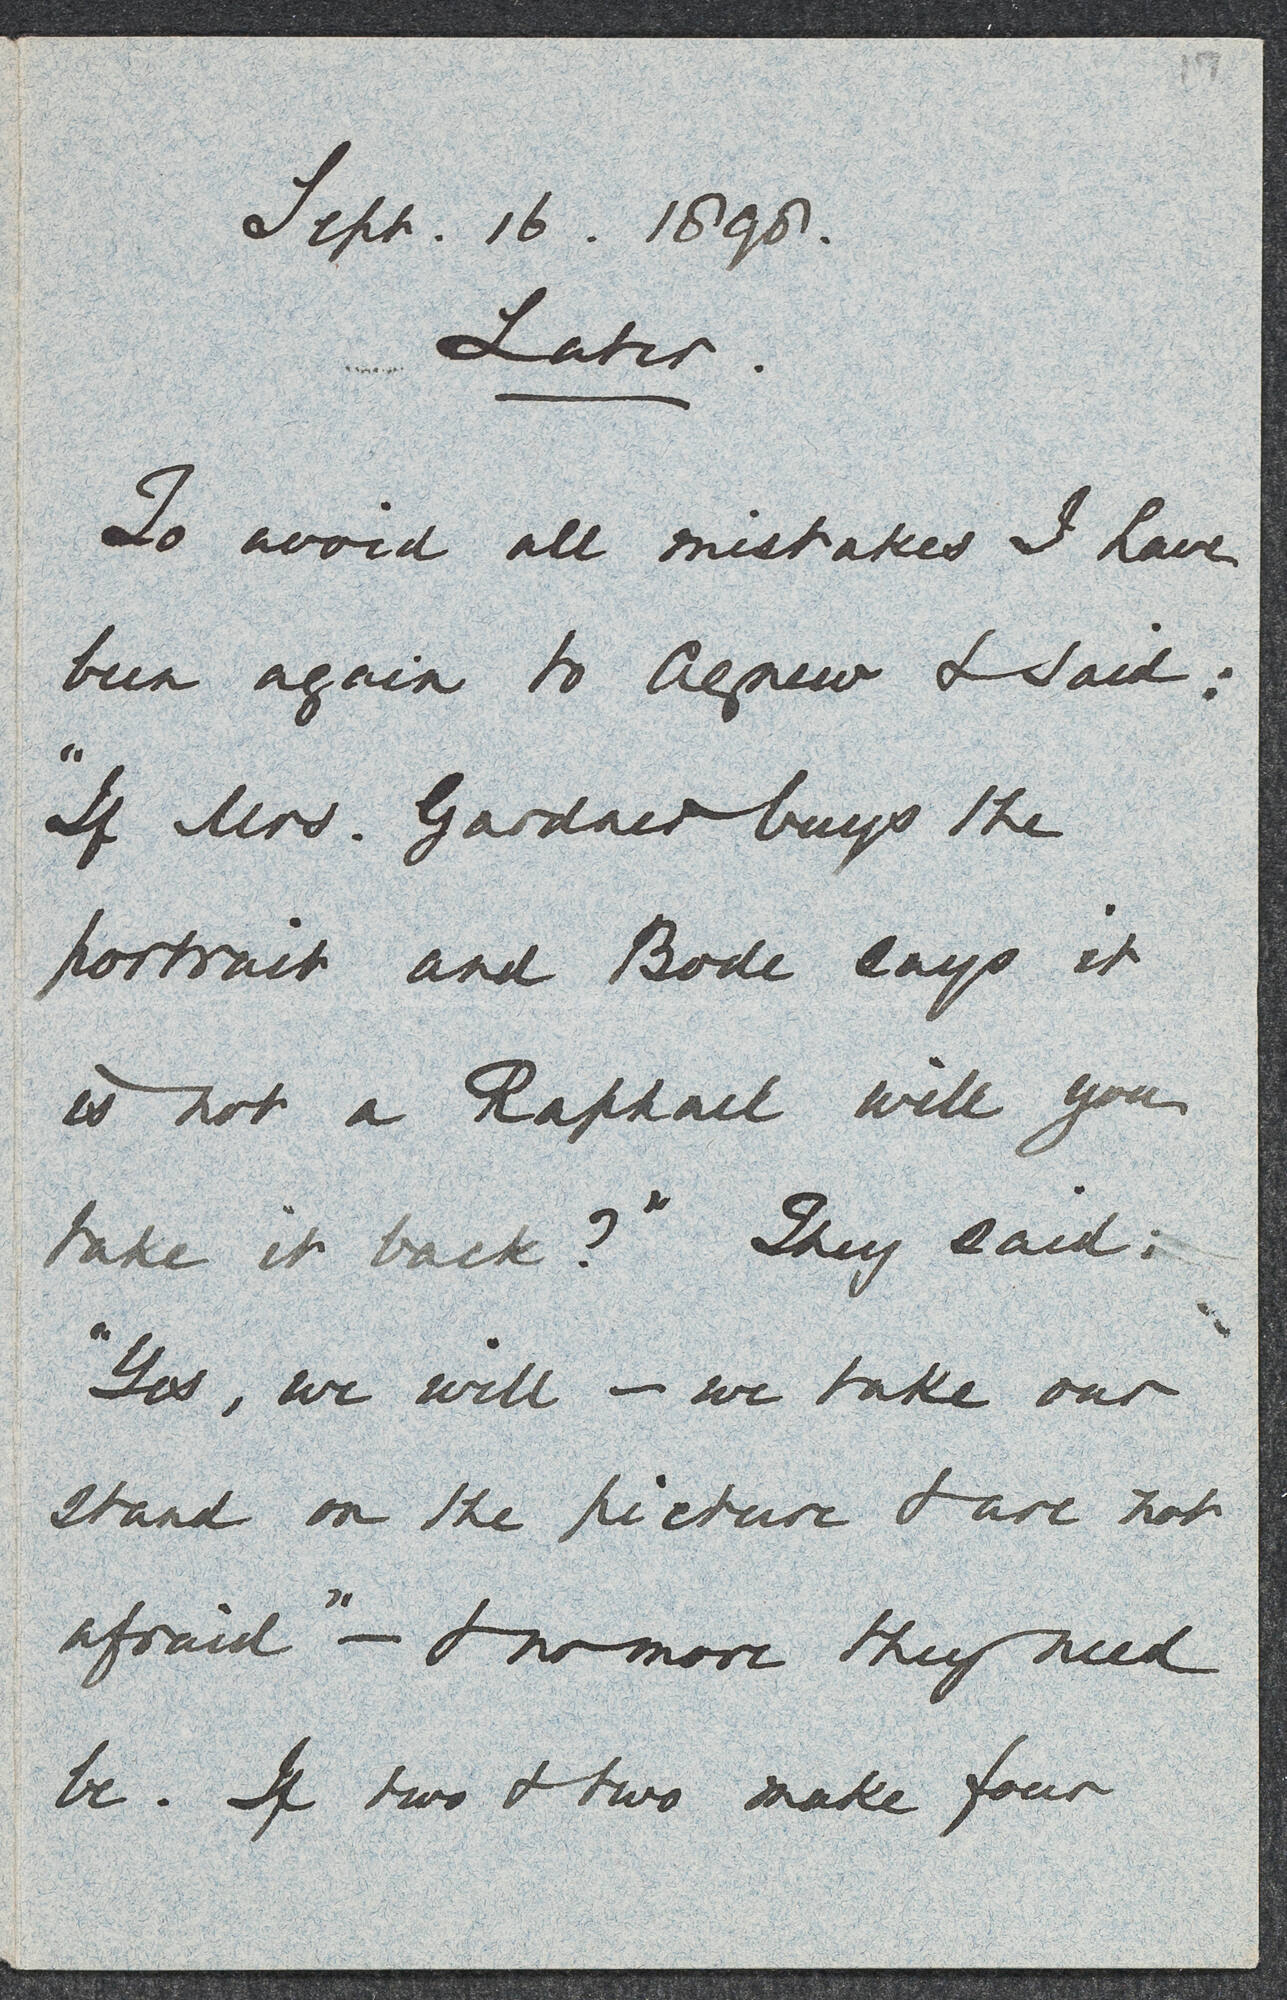 Sept. 16. 1898.
Later.
To avoid all mistakes I have
been again to Agnew & said:
"If Mrs. Gardner buys the
portrait and Bode says it
is not a Raphael will you
take it back?" They said:
"Yes, we will — we take our
stand on the picture & are not
afraid" — & no more they need
be. If two & two make four